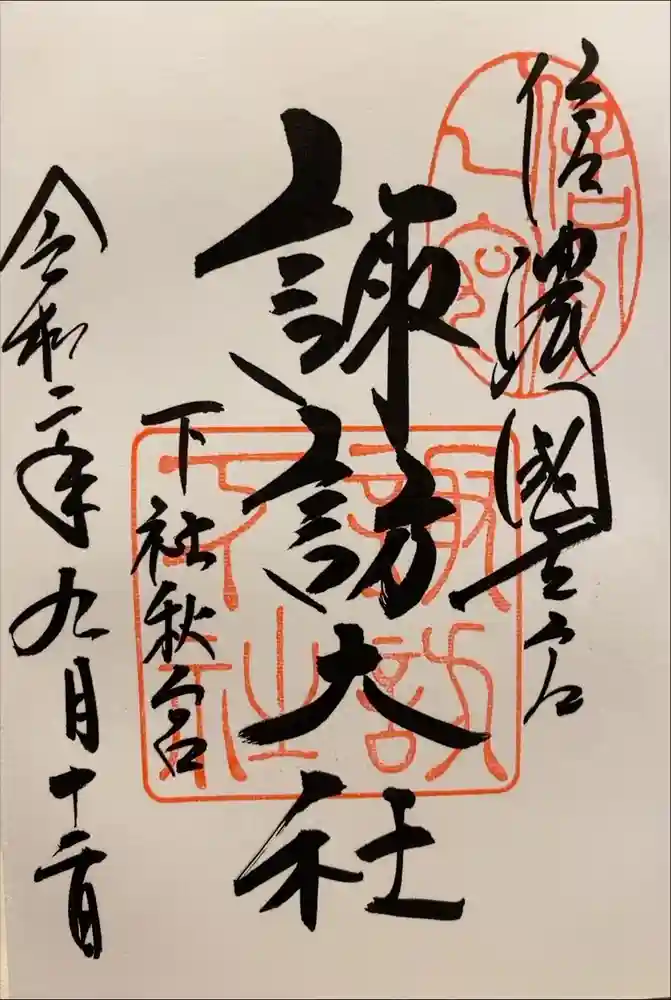 信濃國一之宮
諏訪大社
下社秋宮
令和二年九月十二日
諏訪
下社